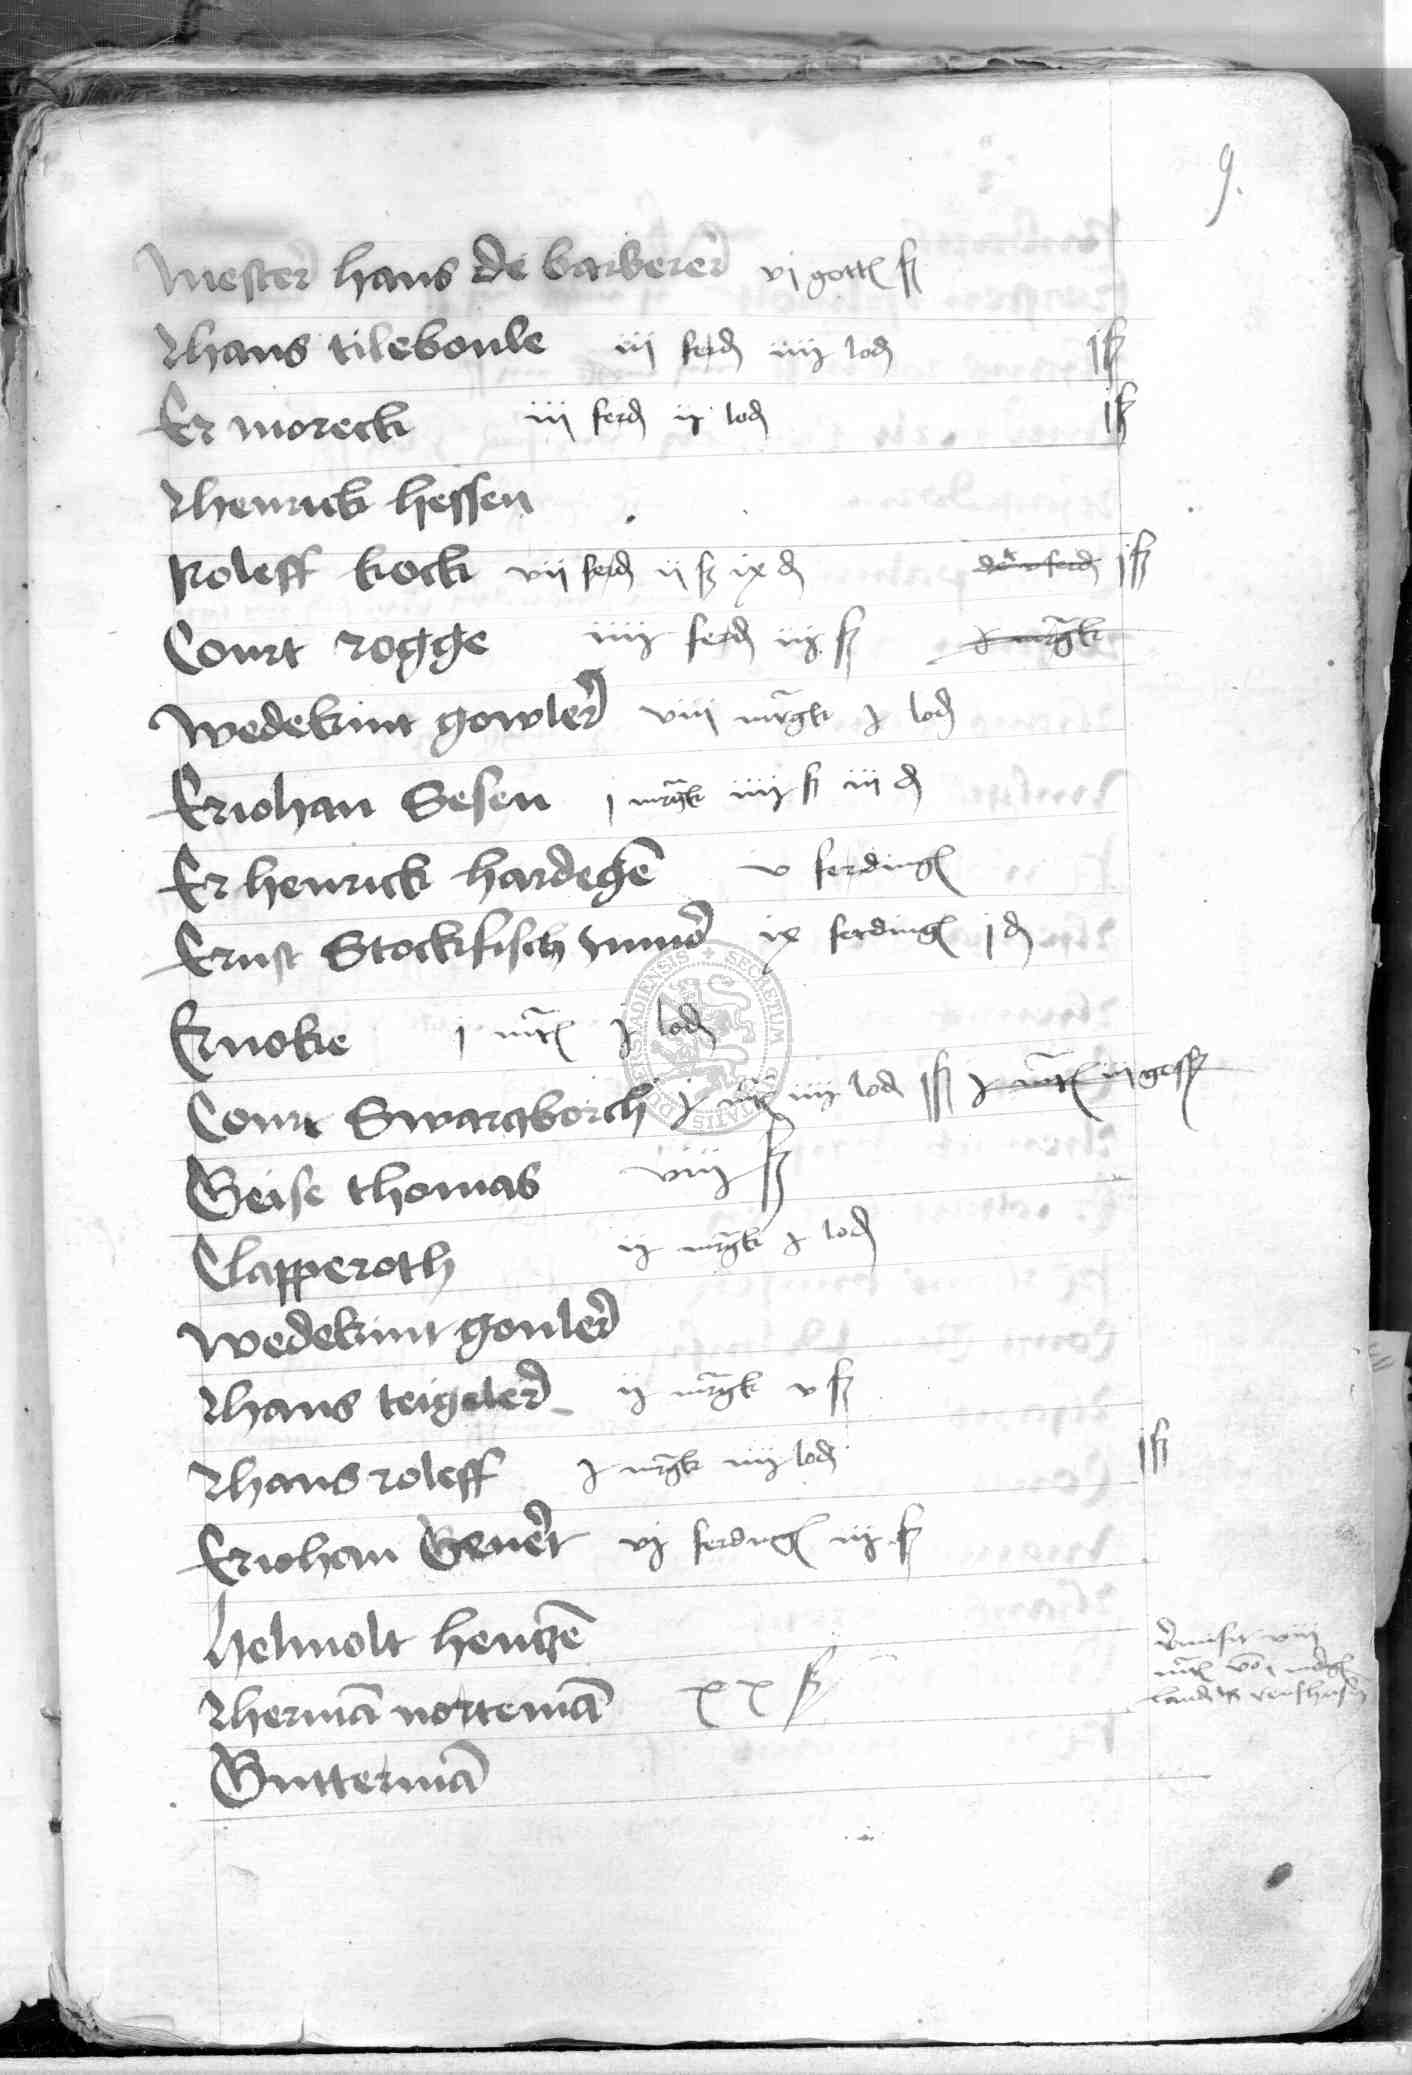 9.
Mester hans de barberer vj gott ß
Hans tileboule iij ferd iiij lod j ß
Er moreck iij ferd ij lod j ß
Henrick hessen
Roleff kock vij ferd ij ß ix d ferd j ß
Court rogge iiij ferd iij ß j margk
Wedekint gowler viij margk j lod
Er iohan Sesen j margk iiij ß iij d
Er henrick hardegē v ferding
Ernst Stockfisch ix ferding j d
Er noke j mr j lod
Court Swartzborch j mr iiij lod j ß j mr iij
Geise thomas viij ß
Clapperoth ij margk j lod
Wedekint gouler
Hans teigeler ij margk v ß
Hans roleff j margk iiij lod j ß
Er iohan Gener vj ferding iij ß
Helmolt hentzē
Hermā nortemā xx ß
viij
mr
Guttermā